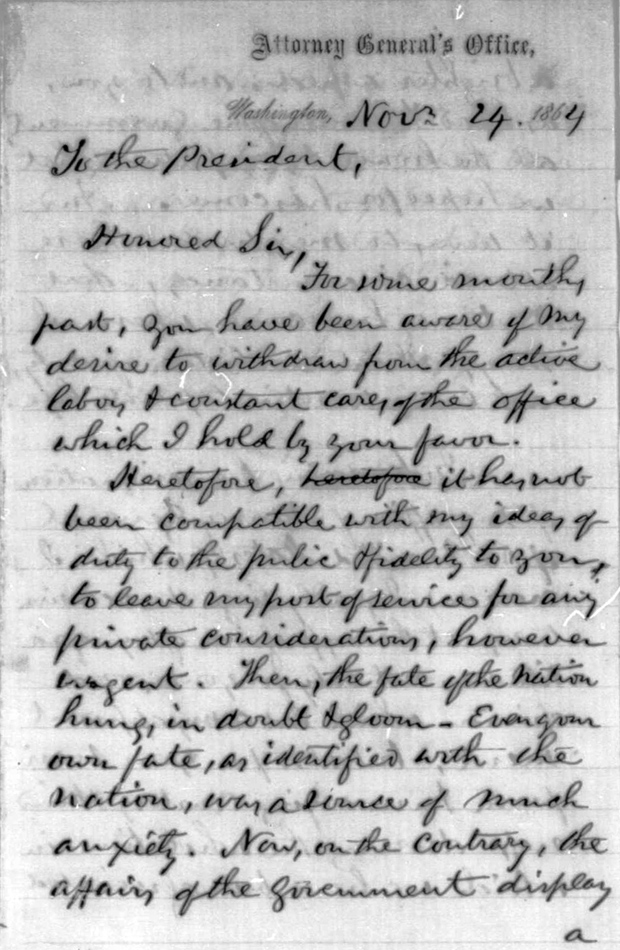 Attorney General's Office,
Washington, Novr. 24. 1864
To the President,
Honored Sir,
For some months
past, you have been aware of my
desire to withdraw from the active
labors & constant cares of the office
which I hold by your favor.
Heretofore, heretofore it has not
been compatible with my ideas of
duty to the public & fidelity to you,
to leave my post of service for any
private considerations, however
urgent. Then, the fate of the nation
hung, in doubt & gloom - Even your
own fate, as identified with the
nation, was a source of much
anxiety. Now, on the contrary, the
affairs of the Government display
a